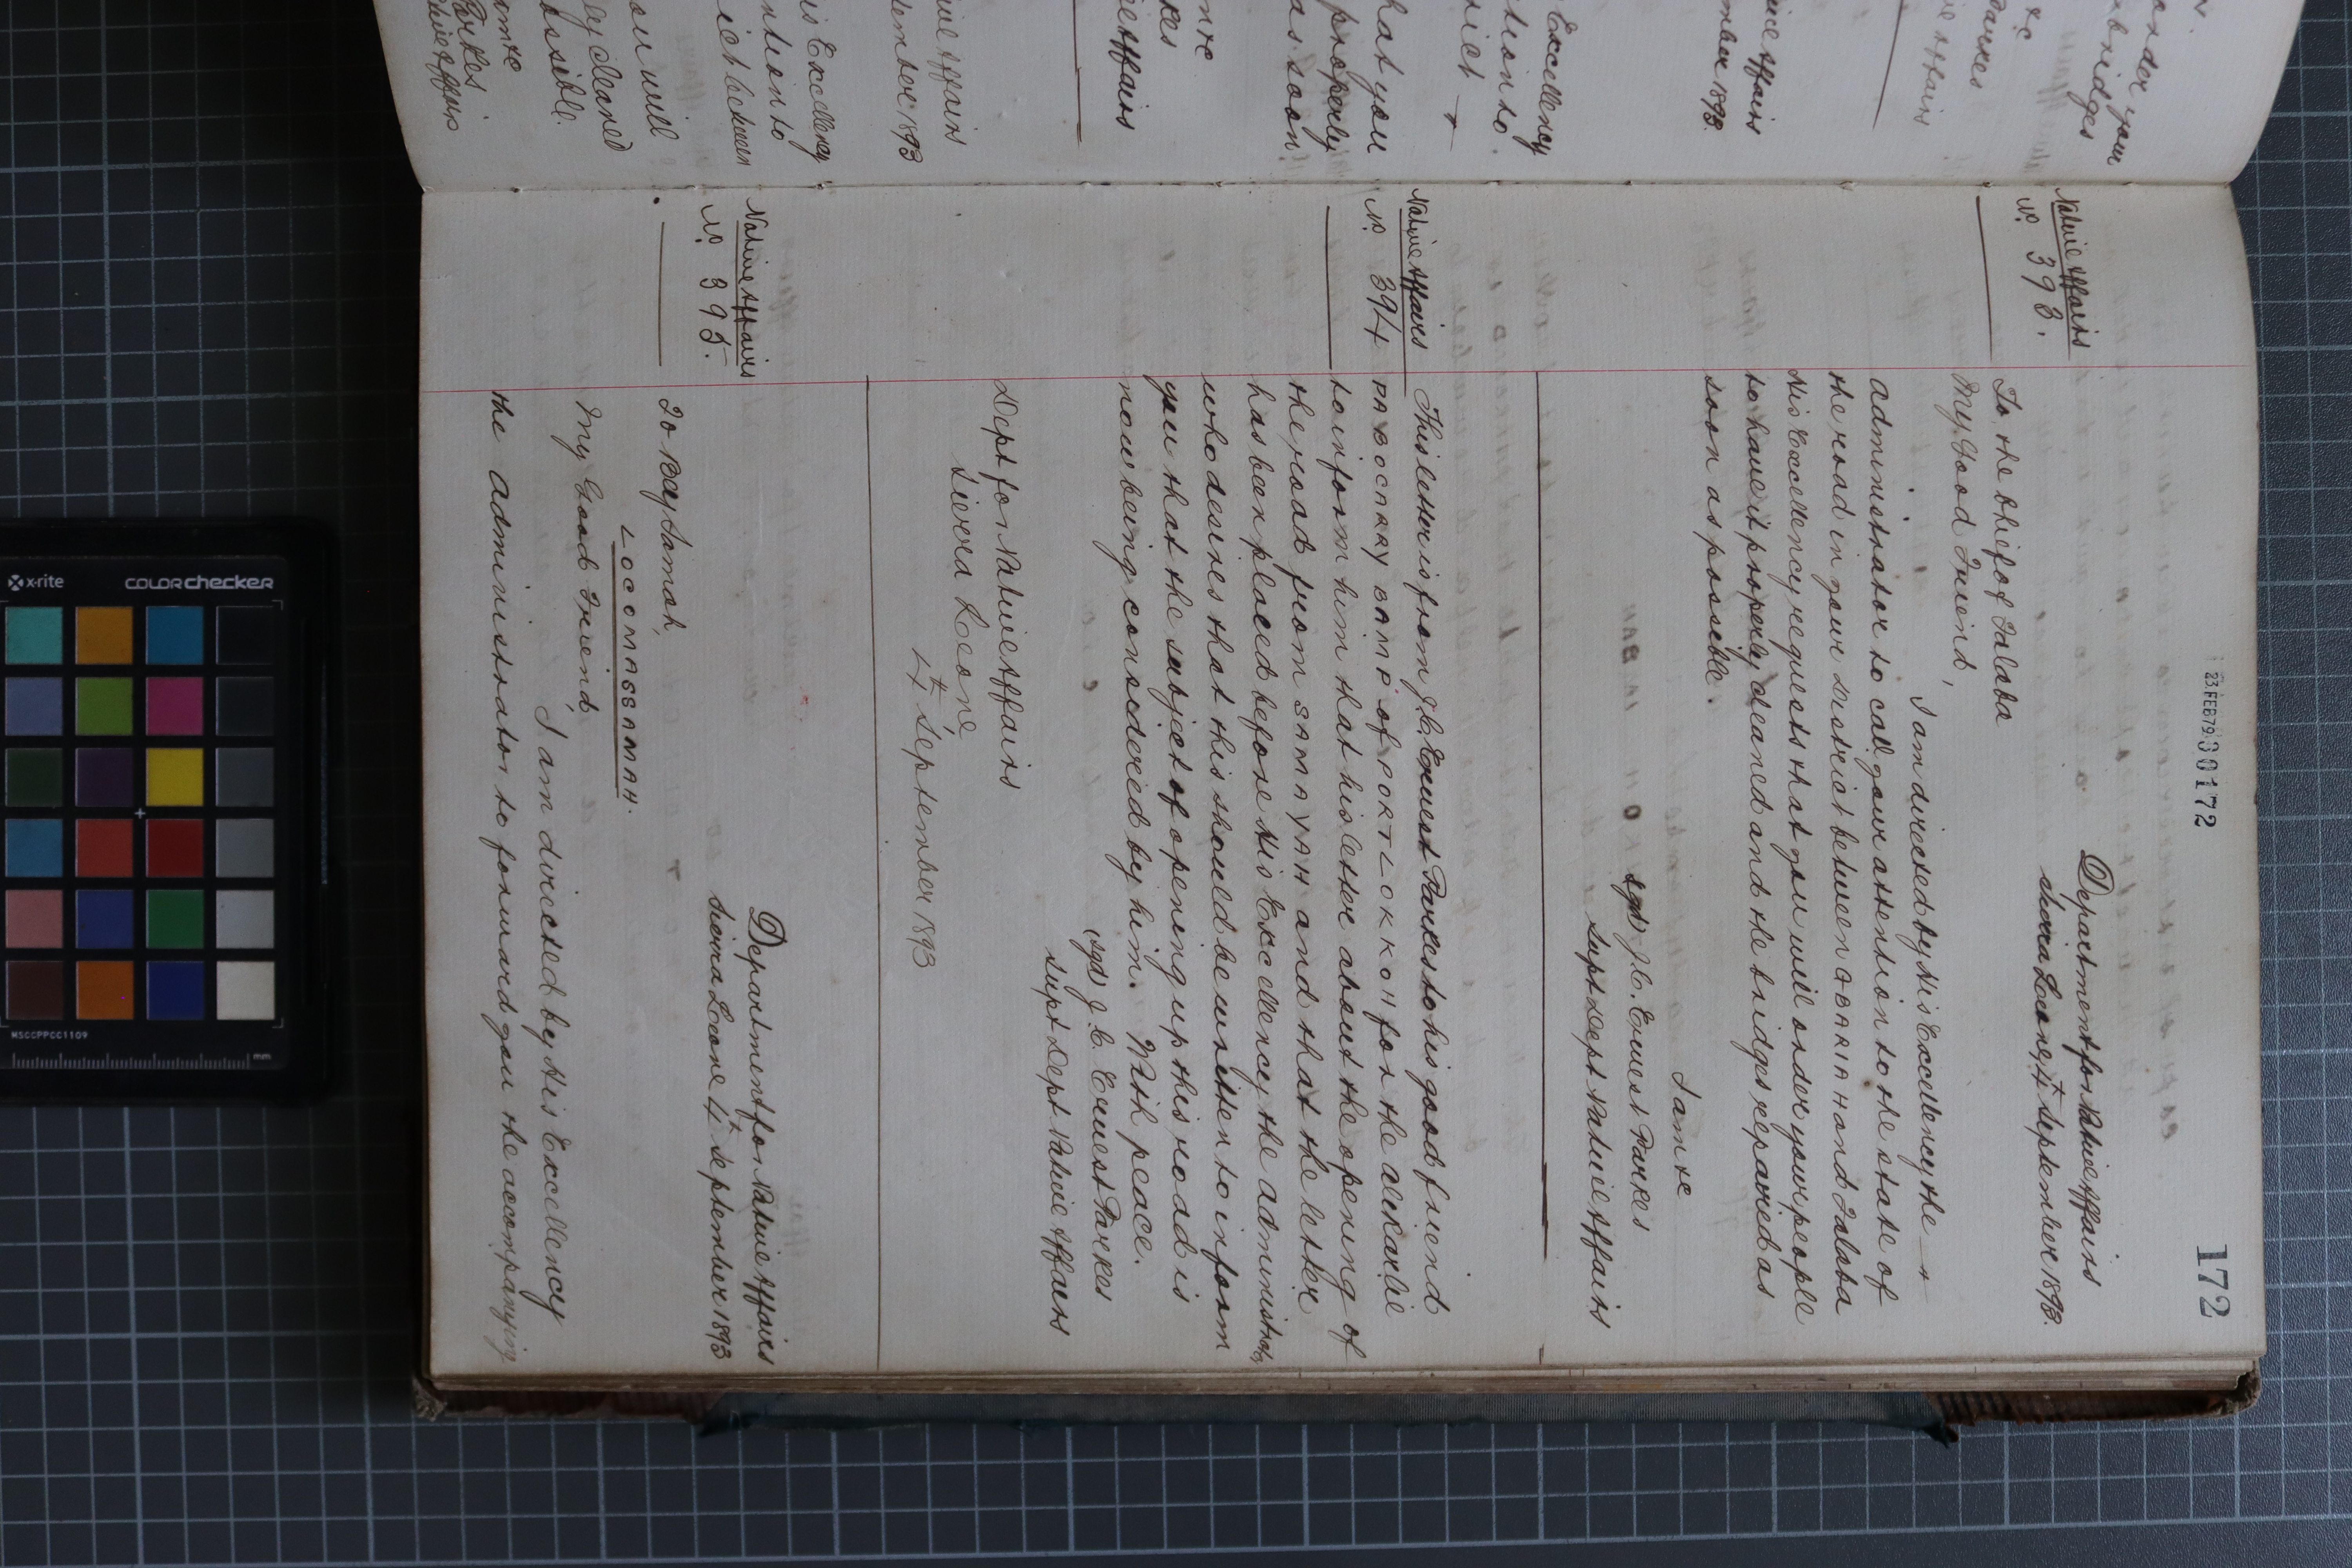 172
23 FEB 79 30172
Native Affairs
No. 393.
Department for Native Affairs
Sierra Leone 4th September 1893.
To the Chief of Falaba
My Good Friend,
I am directed by His Excellency the
Administrator to call your attention to the state of
the road in your District between and Falaba
His Excellency requests that you will order your people
to have it properly cleaned and the bridges repaired as
soon as possible.
I am &c
Sgd J. C. Ernest Parkes
Supt Dept Native Affairs
Native Affairs
No. 394
This letter is from J. C. Ernest Parkes to his good friend
BOCARRY BAMP of PORT LOKKOH for the Alikarlie
to inform him that his letter about the opening of
the road from SAMAYAH and that the letter
has been placed before His Excellency the Administrator
who desires that this should be written to inform
you that the subject of opening up this road is
now being considered by him. With peace.
(Sgd) J. C. Ernest Parkes
Supt Dept Native Affairs
Dept for Native Affairs
Sierra Leone
4th September 1893
Native Affairs
No. 395.
Department for Native Affairs
Sierra Leone 4th September 1893
To Bey Somah,
LOCOMASSAMAH.
My Good Friend,
I am directed by His Excellency
the Administrator to forward you the accompanying
order your
bridges
&c
Parkes
Affairs
Native Affairs
1893.
Excellency
hat you
properly
as soon
Affairs
Native Affairs
September 1893
His Excellency
between
you will
cleaned
possible.
I am &c
Parkes
Native Affairs
x-rite
colorchecker
MSCCPPCC1109
mm